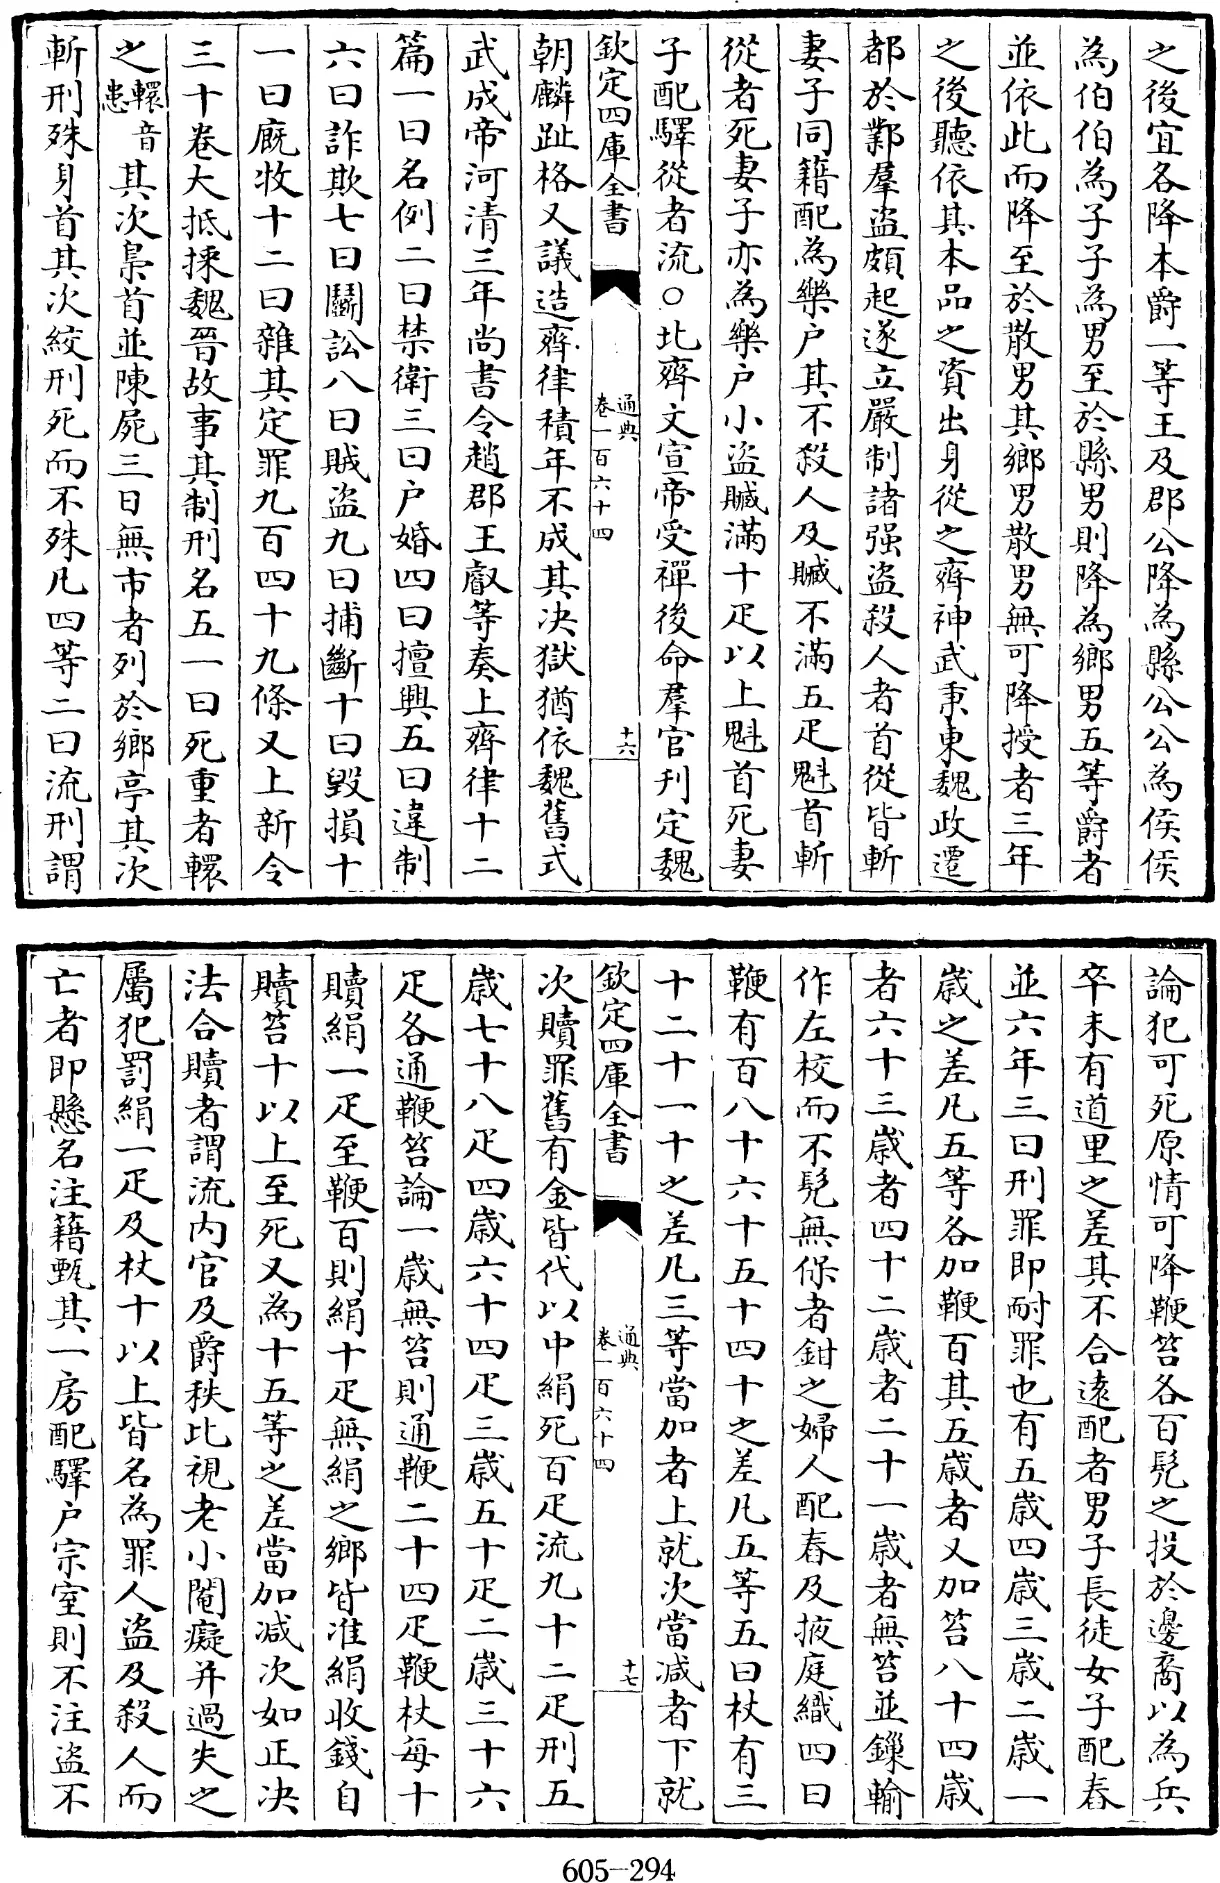 之後宜各降本爵一等王及郡公降為縣公公為侯侯
為伯伯為子子為男至於縣男則降為鄉男五等爵者
並依此而降至於散男其鄉男散男無可降授者三年
之後聽依其本品之資出身從之齊神武秉東魏政遷
都於鄴羣盜頗起遂立嚴制諸强盜殺人者首從皆斬
妻子同籍配為樂户其不殺人及贓不滿五疋魁首斬
從者死妻子亦為樂户小盜贓滿十疋以上魁首死妻
子配驛從者流○北齊文宣帝受禪後命羣官刋定魏
欽定四庫全書
通典
卷一百六十四
十六
朝麟趾格又議造齊律積年不成其决獄猶依魏舊式
武成帝河清三年尚書令趙郡王叡等奏上齊律十二
篇一曰名例二曰禁衛三曰户婚四曰擅興五曰違制
六曰詐欺七曰鬬訟八曰賊盜九曰捕斷十曰毀損十
一曰廐牧十二曰雜其定罪九百四十九條又上新令
三十卷大抵採魏晉故事其制刑名五一曰死重者轘
之轘音患其次梟首並陳屍三日無市者列於鄉亭其次
斬刑殊身首其次絞刑死而不殊凡四等二曰流刑謂
論犯可死原情可降鞭笞各百髡之投於邊裔以為兵
卒未有道里之差其不合遠配者男子長徒女子配舂
並六年三曰刑罪即耐罪也有五歲四歲三歲二歲一
歲之差凡五等各加鞭百其五歲者又加笞八十四歲
者六十三歲者四十二歲者二十一歲者無笞並鏁輸
作左校而不髡無保者鉗之婦人配舂及掖庭織四曰
鞭有百八十六十五十四十之差凡五等五曰杖有三
十二十一十之差凡三等當加者上就次當減者下就
欽定四庫全書
通典
卷一百六十四
十七
次贖罪舊有金皆代以中絹死百疋流九十二疋刑五
歲七十八疋四歲六十四疋三歲五十疋二歲三十六
疋各通鞭笞論一歲無笞則通鞭二十四疋鞭杖每十
贖絹一疋至鞭百則絹十疋無絹之鄉皆准絹收錢自
贖笞十以上至死又為十五等之差當加減次如正决
法合贖者謂流内官及爵秩比視老小閹癡并過失之
屬犯罰絹一疋及杖十以上皆名為罪人盜及殺人而
亡者即懸名注籍甄其一房配驛户宗室則不注盜不
605-294